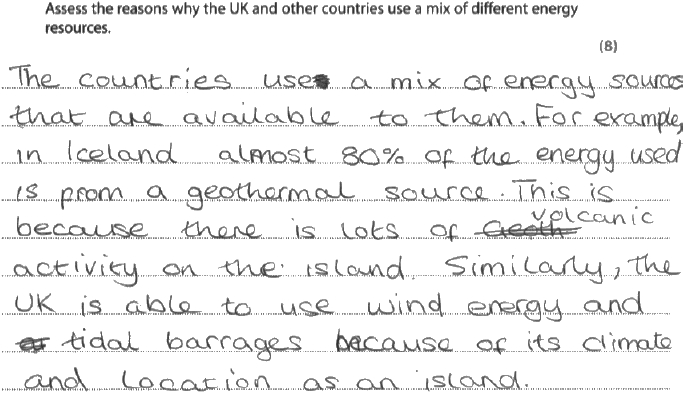 Assess the reasons why the UK and other countries use a mix of different energy
resources.
(8)
The countries use a mix of energy sources
that are available to them. For example,
in Iceland almost 80% of the energy used
is from a geothermal source. This is
because there is lots of volcanic
activity on the island. Similarly, the
UK is able to use wind energy and
tidal barrages because of its climate
and location as an island.